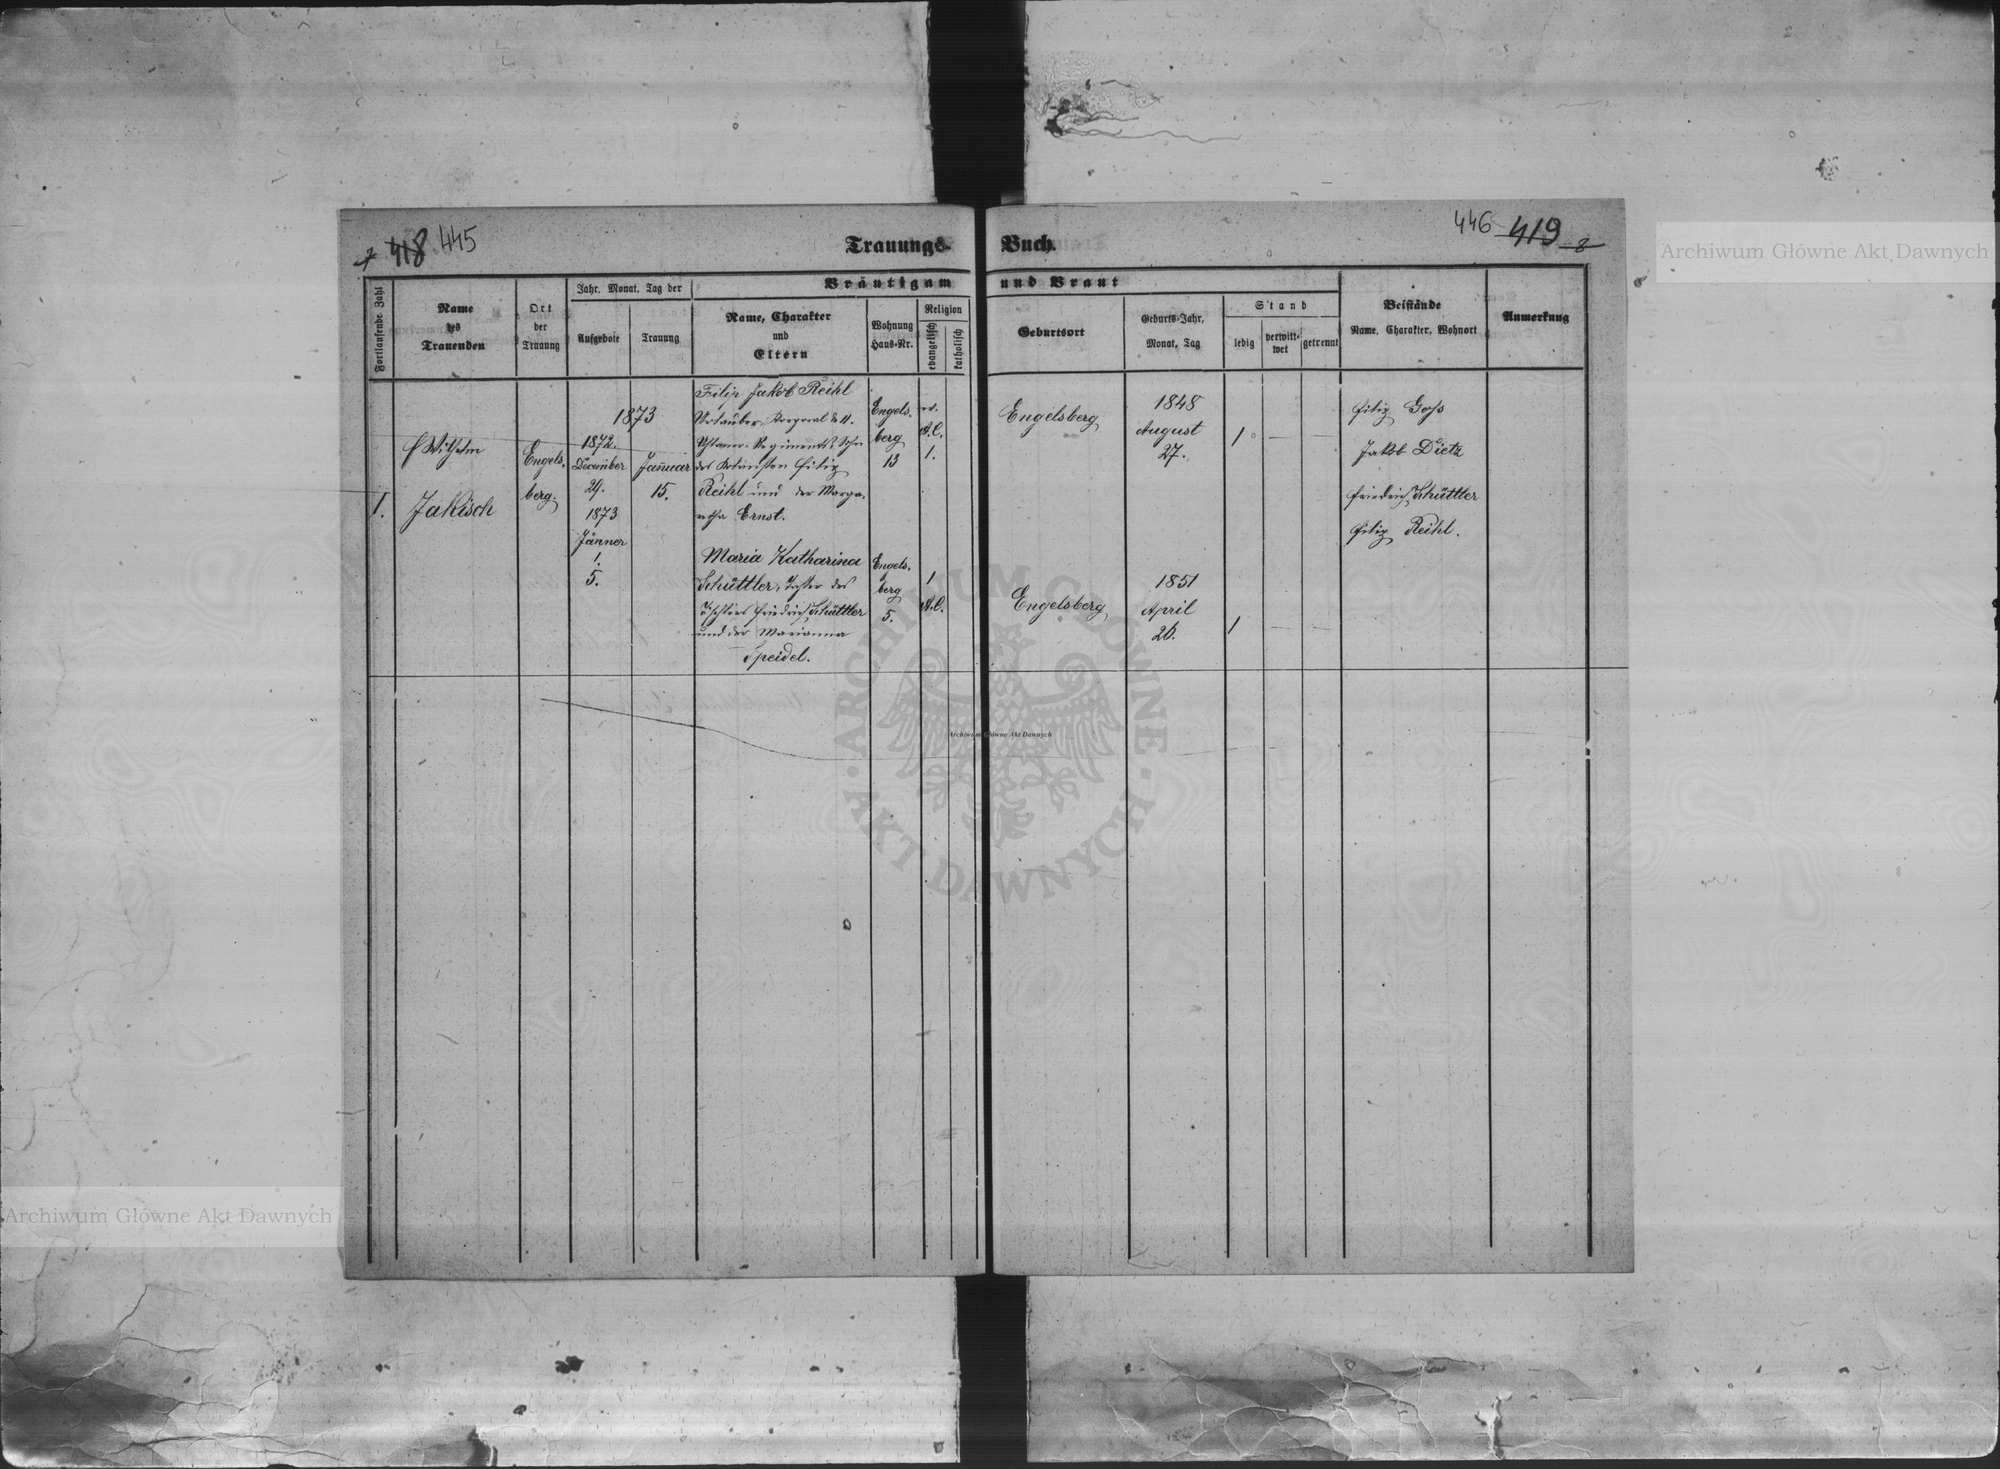 7 418 445
Trauungs-
Buch
446 419 8
Archiwum Główne Akt Dawnych
Fortlaufende Zahl
Name
des
Trauenden
Ort
der
Trauung
Jahr, Monat, Tag der
Aufgebote
Trauung
Bräutigam
und Braut
Name, Charakter
und
Eltern
Wohnung
Haus-Nr.
Religion
evangelisch
katholisch
Geburtsort
Geburts-Jahr,
Monat, Tag
Stand
ledig
verwitt-
wet
getrennt
Beistände
Name, Charakter, Wohnort
Anmerkung
1.
Wilhelm
Jakisch
Engels-
berg.
1873
1872.
December
29.
1873
Jänner
1.
5.
Januar
15.
Filip Jakob Reihl
Urlauber, Korporal
Regiments, Sohn
des Filip
Reihl und der Marga-
retha Ernst.
Engels-
berg
13
ev.
A.C.
1.
Engelsberg
1848
August
27.
1
Filip Goss
Jakob Dietz
Friedrich Schüttler
Filip Reihl.
Maria Katharina
Schüttler, Tochter des
Tischlers Friedrich Schüttler
und der Marianna
Speidel.
Engels-
berg
5.
1
A.C.
Engelsberg
1851
April
26.
1
ARCHIWUM GŁÓWNE
AKT DAWNYCH
Archiwum Główne Akt Dawnych
Archiwum Główne Akt Dawnych